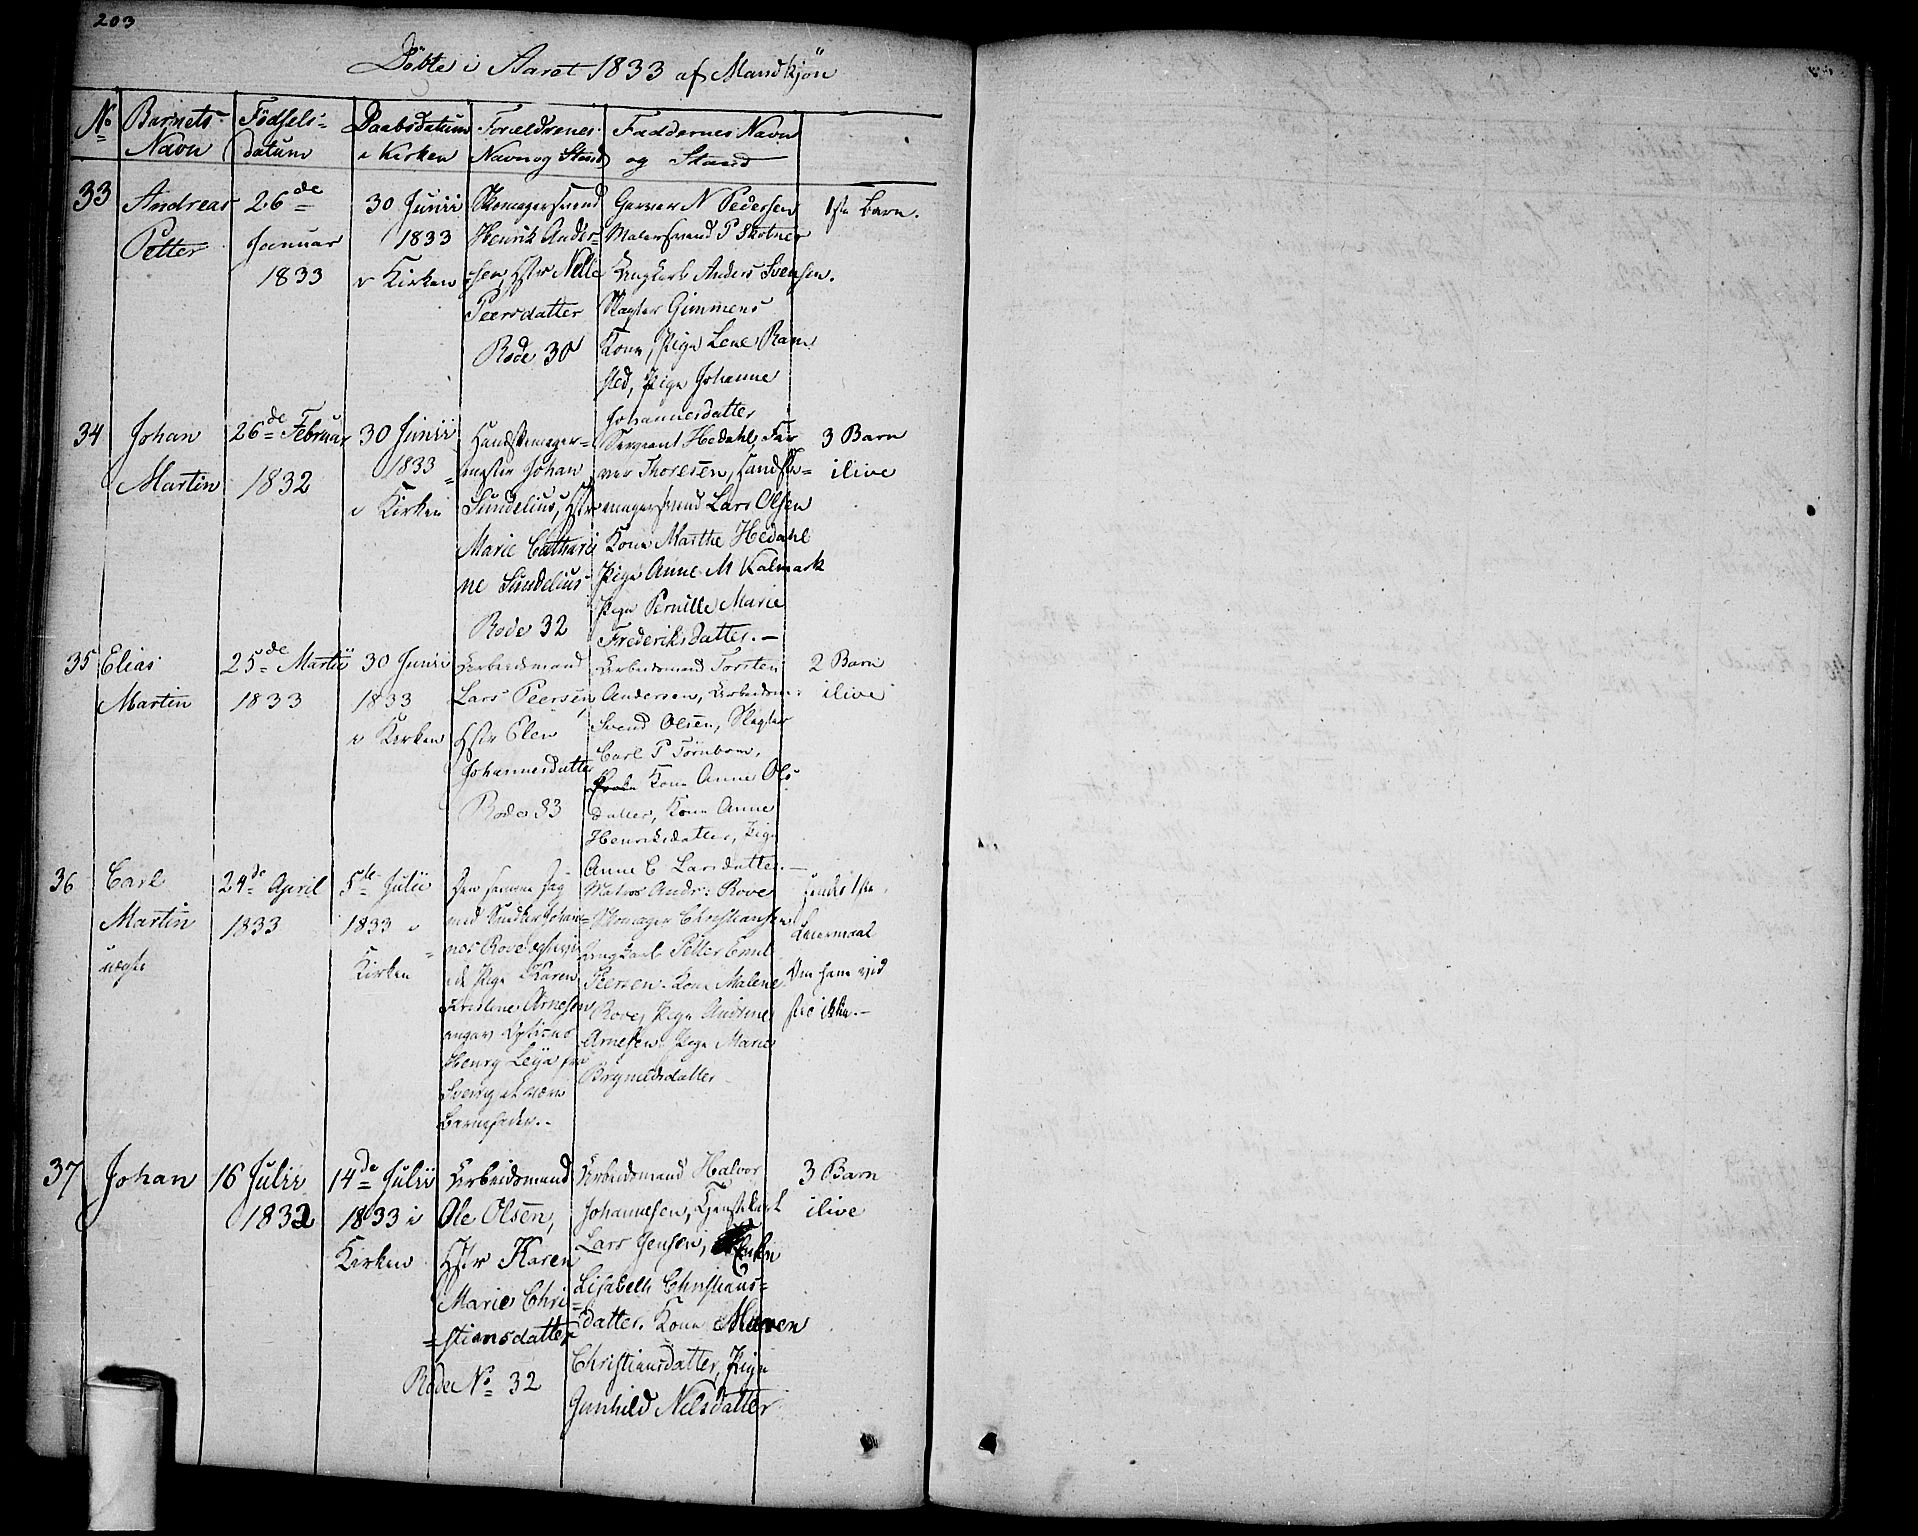 203
Döbte i Aaret 1833 af Mandkjön
No Barnets Navn
Födsels-datum
Daabsdatum i Kirken
Forældrenes Navn og Stand
Faddernes Navn og Stand
33
Andreas
Petter
26de
Januar
1833
30 Junii
1833
i Kirken
Skomagersvend
Henrik Ander-
sen, Hstr Nelle
Peersdatter
Rode 30
Garver N Pedersen
Malersvend P Skotner
Ungkarl Anders Svensen.
Slagter Gimmens
Kone, Pige Lene Ram
sted, Pige Johanne
Johannesdatter
1ste Barn.
34
Johan
Martin
26de Februar
1832
30 Junii
1833
i Kirken
Handskemager-
mester Johan
Sundelius, Hstr
Marie Cathari
ne Sundelius
Rode 32
Sergeant Hedahl, Far
ver Thoresen, Handske-
magersvend Lars Olsen
Kone Marthe Hedahl
Pige Anne M Kalmark
Pige Pernille Marie
Frederiksdatter.-
3 Barn
ilive
35
Elias
Martin
25de Martii
1833
30 Junii
1833
i Kirken
Arbeidsmand
Lars Peersen
Hstr Elen
Johannesdatter
Rode 33
Arbeidsmand Torsten
Andersen, Arbeidsm:
Svend Olsen, Slagter
Carl P Törnbom,
Kone Anne Ols
datter, Kone Anne
Henriksdatter, Pige
Anne C Larsdatter.-
2 Barn
ilive
36
Carl
Martin
uægte
24de April
1833
5te Julii
1833 i
Kirken
Den samme Dag
med Snedker Johan
nes Rove
Pige Karen
Arnesen
angav
Henry
Sverrig at være
Barnefader.-
Matros Andr: Rove
Skomager Christiansen
Ungkarl Petter Emil
Peersen. Kone Malene
Rove, Pige Andrine
Arnesen. Pige Marie
Brynildsdatter
Hendes 1ste
Leiermaal
Om ham vid
ste ikke.-
37
Johan
16 Julii
1832
14de Julii
1833 i
Kirken
Arbeidsmand
Ole Olsen,
Hstr Karen
Marie Chri-
stiansdatter
Rode No 32
Arbeidsmand Halvor
Johannesen, Tjenstekarl
Lars Jensen, Enken
Lisabeth Christians-
datter. Kone Maren
Christiansdatter, Pige
Gunhild Nilsdatter
3 Barn
ilive